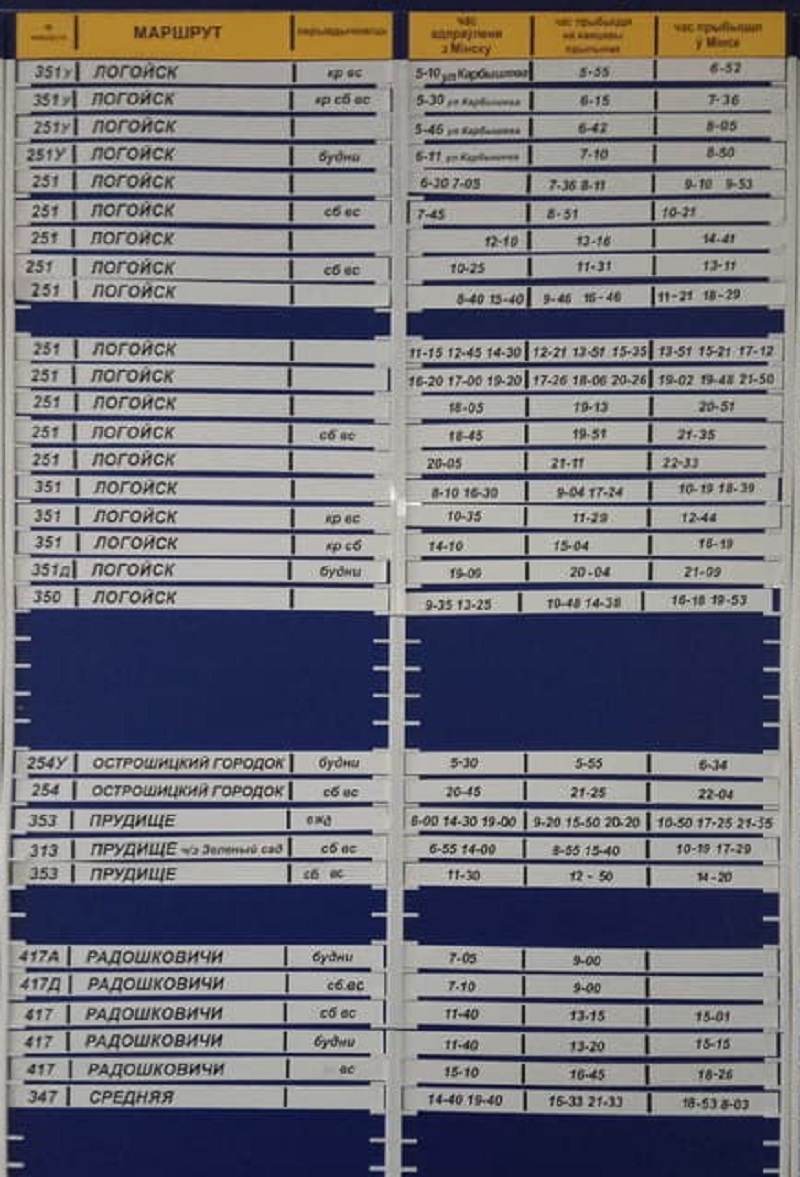 № маршрута МАРШРУТ перыядычнасць час адпраўлення з Мінску час прыбыцця на канцавы прыпынак час прыбыцця ў Мінск
351у ЛОГОЙСК кр вс 5-10 ул Карбышева 5-55 6-52
351у ЛОГОЙСК кр сб вс 5-30 ул Карбышева 6-15 7-36
251у ЛОГОЙСК 5-46 ул Карбышева 6-42 8-05
251У ЛОГОЙСК будни 6-11 ул Карбышева 7-10 8-50
251 ЛОГОЙСК 6-30 7-05 7-36 8-11 9-10 9-53
251 ЛОГОЙСК сб вс 7-45 8-51 10-21
251 ЛОГОЙСК 12-10 13-16 14-41
251 ЛОГОЙСК сб вс 10-25 11-31 13-11
251 ЛОГОЙСК 8-40 15-40 9-46 16-46 11-21 18-29
251 ЛОГОЙСК 11-15 12-45 14-30 12-21 13-51 15-35 13-51 15-21 17-12
251 ЛОГОЙСК 16-20 17-00 19-20 17-26 18-06 20-26 19-02 19-48 21-50
251 ЛОГОЙСК 18-05 19-13 20-51
251 ЛОГОЙСК сб вс 18-45 19-51 21-35
251 ЛОГОЙСК 20-05 21-11 22-33
351 ЛОГОЙСК 8-10 16-30 9-04 17-24 10-19 18-39
351 ЛОГОЙСК кр вс 10-35 11-29 12-44
351 ЛОГОЙСК кр сб 14-10 15-04 16-19
351д ЛОГОЙСК будни 19-09 20-04 21-09
350 ЛОГОЙСК 9-35 13-25 10-48 14-38 16-18 19-53
254У ОСТРОШИЦКИЙ ГОРОДОК будни 5-30 5-55 6-34
254 ОСТРОШИЦКИЙ ГОРОДОК сб вс 20-45 21-25 22-04
353 ПРУДИЩЕ ежд 8-00 14-30 19-00 9-20 15-50 20-20 10-50 17-25 21-35
313 ПРУДИЩЕ ч/з Зеленый сад сб вс 6-55 14-00 8-55 15-40 10-19 17-29
353 ПРУДИЩЕ сб вс 11-30 12 - 50 14-20
417А РАДОШКОВИЧИ будни 7-05 9-00
417Д РАДОШКОВИЧИ сб.вс 7-10 9-00
417 РАДОШКОВИЧИ сб вс 11-40 13-15 15-01
417 РАДОШКОВИЧИ будни 11-40 13-20 15-15
417 РАДОШКОВИЧИ вс 15-10 16-45 18-26
347 СРЕДНЯЯ 14-40 19-40 16-33 21-33 18-53 8-03